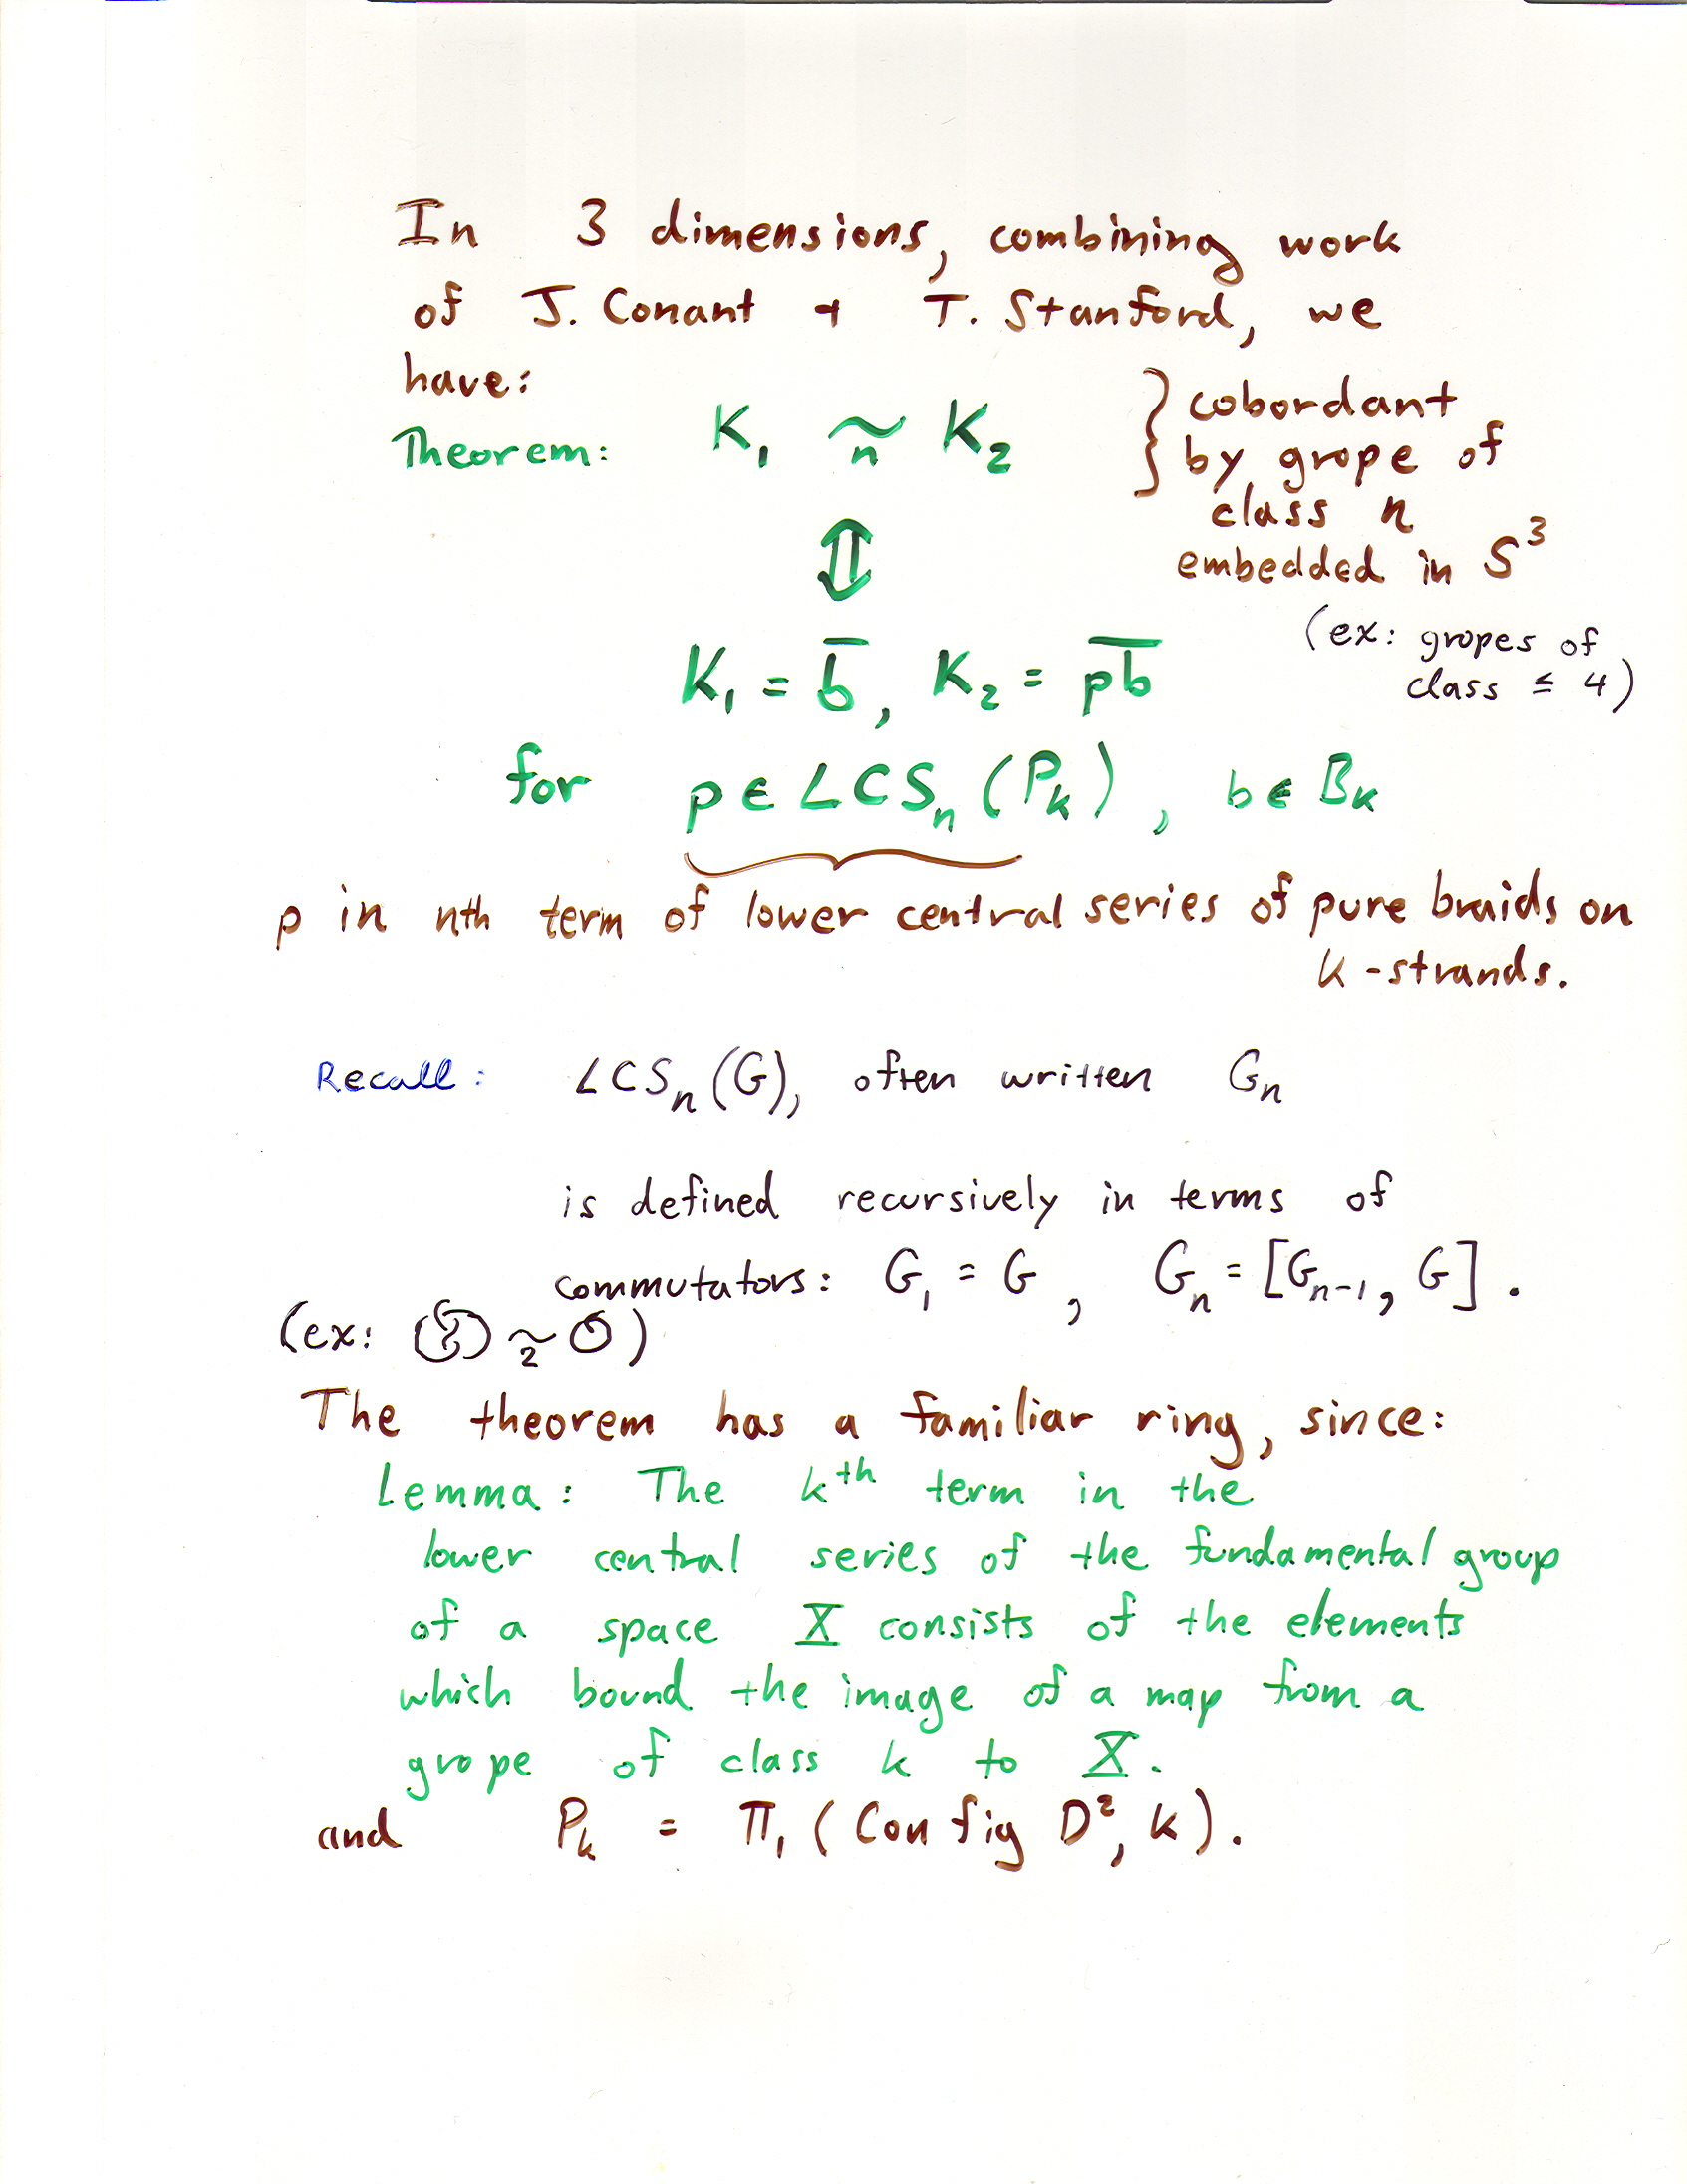 In 3 dimensions, combining work
of J. Conant + T. Stanford, we
have:
Theorem: K₁ ≈ₙ K₂ } cobordant
by grope of
class n
embedded in S³
(ex: gropes of
class ≤ 4)
⇕
K₁ = b̅, K₂ = p̅b̅
for p ∈ LCSₙ(Pₖ), b ∈ Bₖ
p in nth term of lower central series of pure braids on
k-strands.
Recall: LCSₙ(G), often written Gₙ
is defined recursively in terms of
commutators: G₁ = G, Gₙ = [Gₙ₋₁, G].
(ex: ~₂ O)
The theorem has a familiar ring, since:
Lemma: The kᵗʰ term in the
lower central series of the fundamental group
of a space X consists of the elements
which bound the image of a map from a
grope of class k to X.
and Pₖ = π₁(Config D², k).